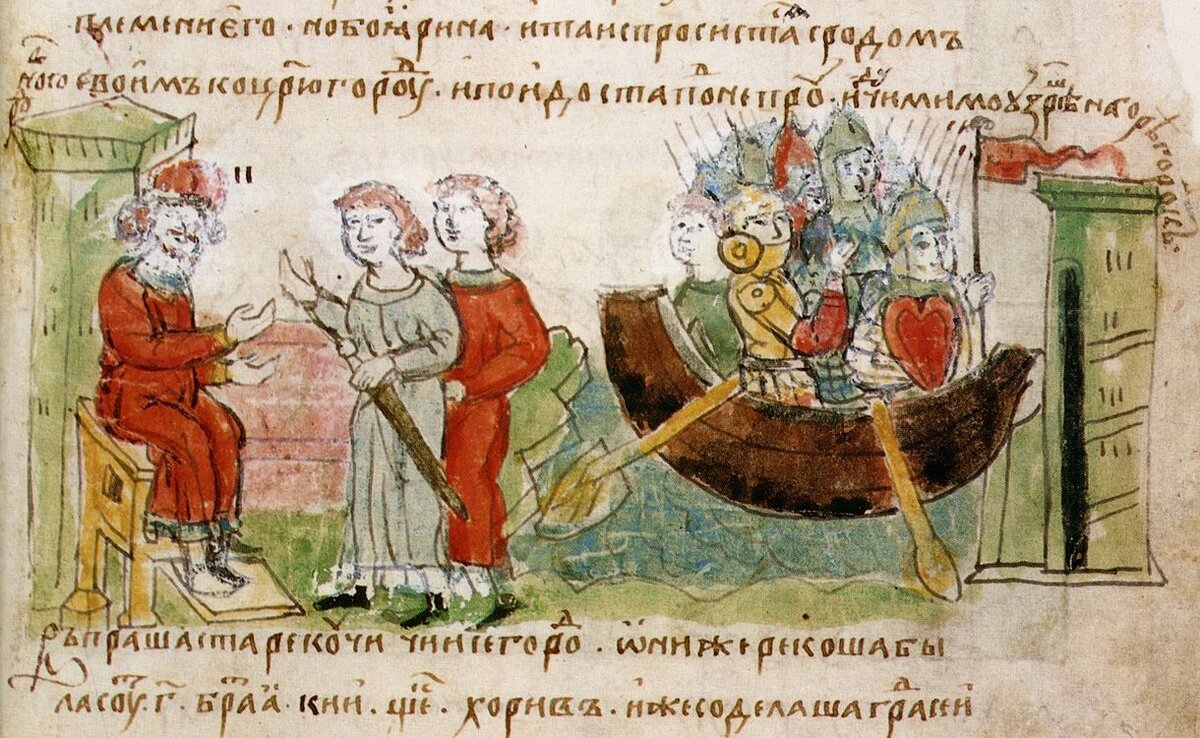 племени его · но боѧрина · и та испросистаⷭ с родомъ
своимъ ко црюгороⷣу · и поидоста по непрꙋ · и идꙋчи мимо узрѣста на горѣ городокъ
въпрашаста рекꙋчи чии се гороⷣ · ѡни же рекоша бы
ла соуⷮ · г҃ · браⷮѧ · кии · щеⷦ · хоривъ · иже соделаша граⷣ сеи